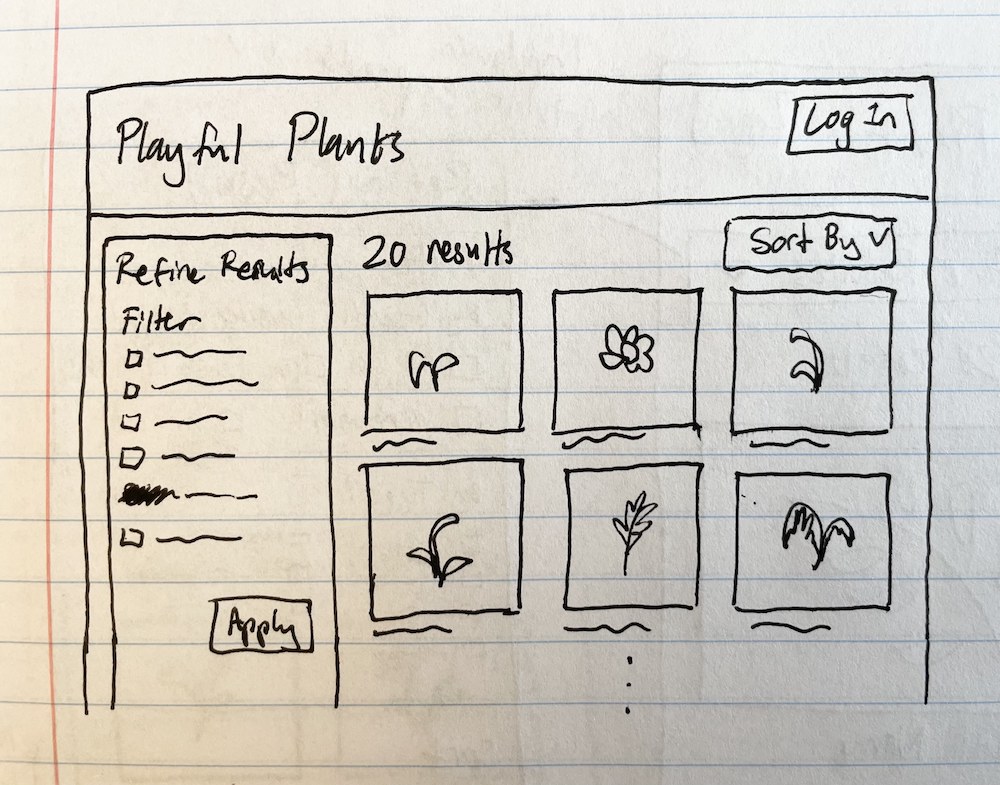 Playful Plants
Log In
Refine Results
Filter
Apply
20 results
Sort By